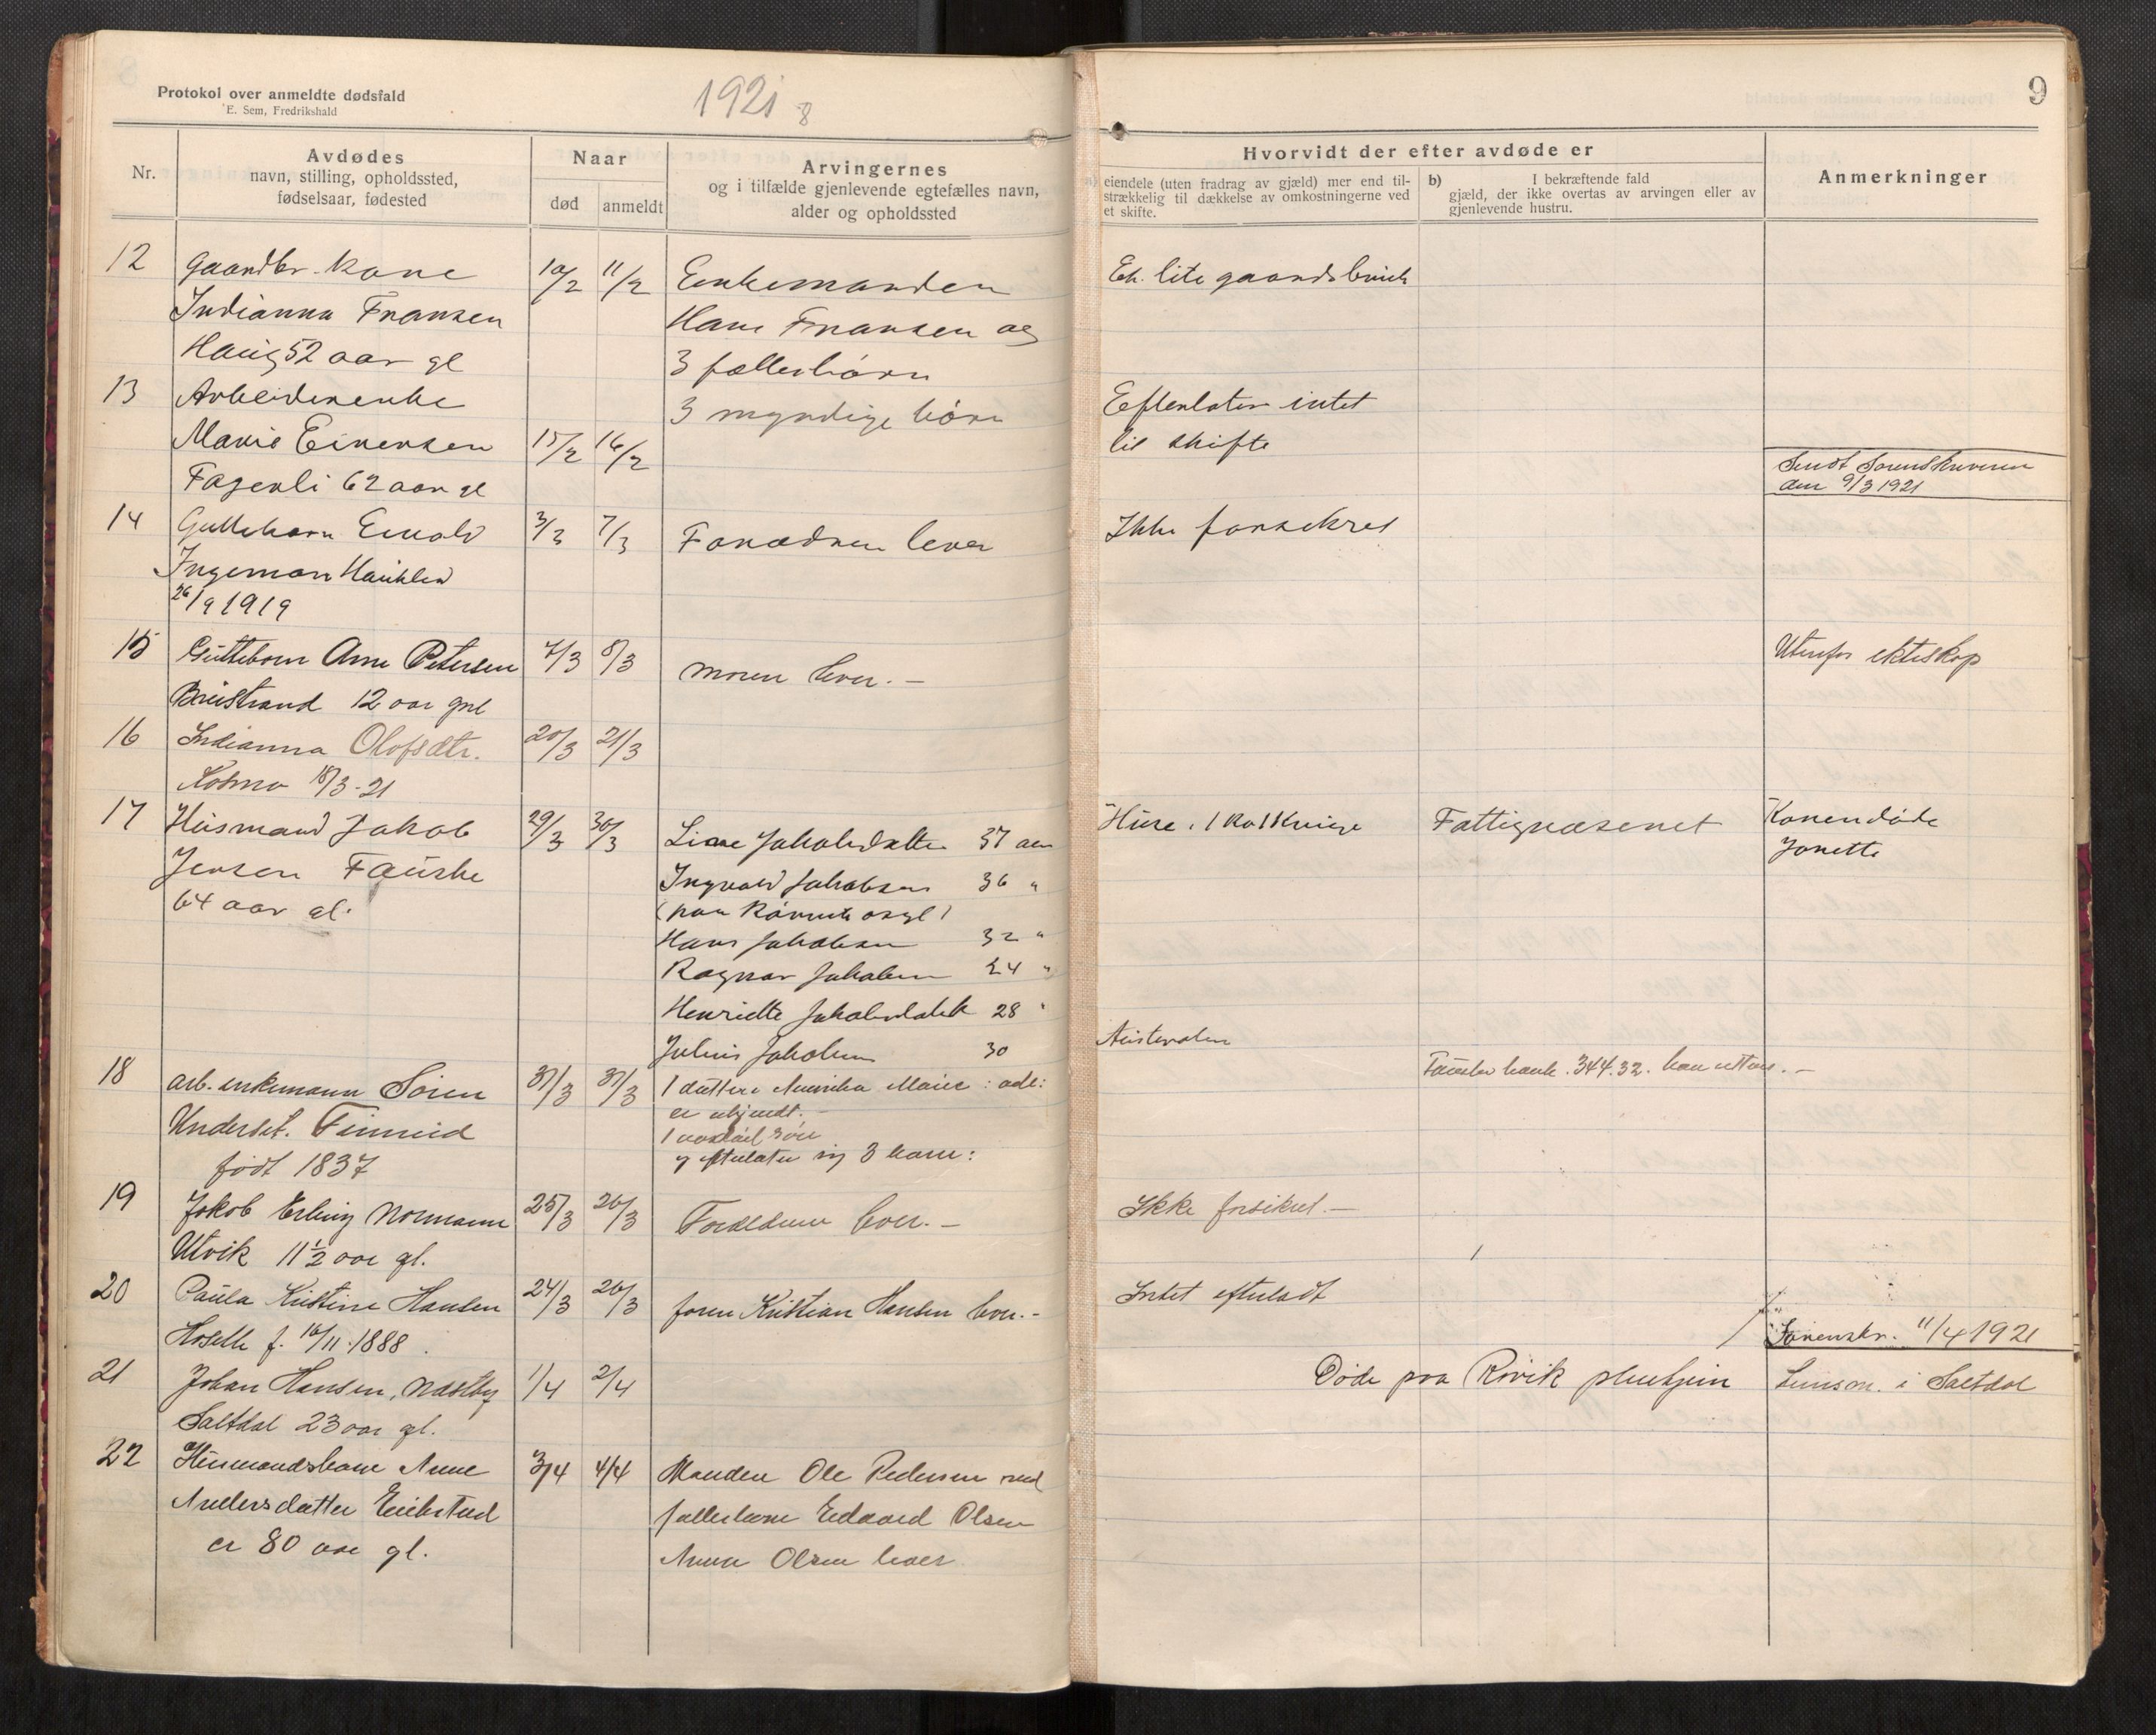 Protokol over anmeldte dødsfald
E. Sem, Fredrikshald
1921
8
9
Nr.
Avdødes
navn, stilling, opholdssted,
fødselsaar, fødested
Naar
død
anmeldt
Arvingernes
og i tilfælde gjenlevende egtefælles navn,
alder og opholdssted
Hvorvidt der efter avdøde er
eiendele (uten fradrag av gjæld) mer end til-
strækkelig til dækkelse av omkostningerne ved
et skifte.
b) I bekræftende fald
gjæld, der ikke overtas av arvingen eller av
gjenlevende hustru.
Anmerkninger
12 Gaardbr. kone 10/2 11/2 Enkemanden Et lite gaardsbruk
Indianna Fransen Hans Fransen og
Haug 52 aar gl 3 fællesbørn
13 Arbeiderenke 3 myndige børn Efterlater intet
Marie Einersen 15/2 16/2 til skifte
Fagerli 62 aar gl
Sendt Sorenskriveren
den 9/3 1921
14 Guttebarn Envald 3/3 7/3 Forældren lever Ikke forsikret
Ingeman
26/9 1919
15 Guttebarn Arne Petersen 7/3 8/3 moren lever. - Utenfor ekteskap
12 aar gml
16 Indianna Olofsdtr. 20/3 21/3
Kosmo 18/3-21
17 Husmand Jakob 29/3 30/3 Jakobsdatter 37 aar Huse, 1 ko 1 kvige Fattigvæsenet Konen døde
Jensen Fauske Ingvald Jakobsen 36 " Jonette
64 aar gl. (paa Rønvik asyl)
Hans Jakobsen 32 "
Ragnar Jakobsen 24 "
Henriette Jakobsdatt 28 "
Julius Jakobsen 30
18 arb. enkemann Søren 31/3 31/3 1 datter Maie Fauske bank. 344.32.
Underset. Finneid er
født 1837 efterlater sig 3 barn:
19 Jakob Erling Normann 25/3 26/3 Forældrene lever. - Ikke forsikret. -
Utvik 11½ aar gl.
20 Paula Kristine Hansen 24/3 26/3 faren Kristian Hansen lever. - Intet efterladt
f. 16/11.1888
Sorenskr. 11/4 1921
21 Johan Hansen, Næstby 1/4 2/4 Døde paa Røvik pleiehjem Lensm. i Saltdal
Saltdal 23 aar gl.
22 Husmandskone Anne 3/4 4/4 Manden Ole Pedersen med
Andersdatter fællesbarn Edvard Olsen
er 80 aar gl. Anna Olsen lever